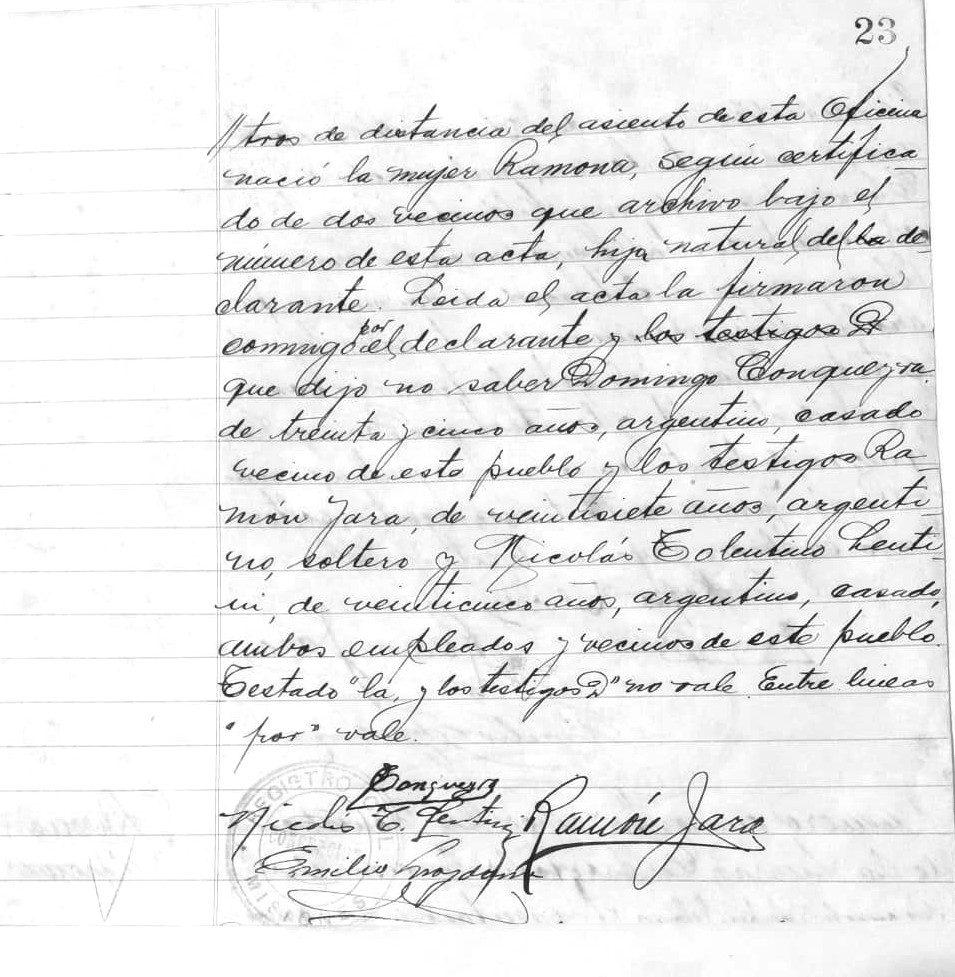 23
// tros de distancia del asiento de esta Oficina
nació la mujer Ramona, según certifica
do de dos vecinos que archivo bajo el
número de esta acta, hija natural del la de
clarante. Leida el acta la firmaron
conmigo por el declarante y los testigos D
que dijo no saber Domingo Conqueyra
de treinta y cinco años, argentino, casado
vecino de este pueblo y los testigos Ra-
món Jara, de veintisiete años, argenti-
no, soltero y Nicolás Tolentino Lenti-
ni, de veinticinco años, argentino, casado,
ambos empleados y vecinos de este pueblo.
Testado "la, y los testigos D" no vale. Entre lineas
"por" vale.
Conqueyra
Nicolás T. Lentini Ramón Jara
Emilio
REGISTRO
MISIONES